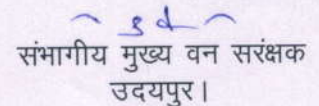 संभागीय मुख्य वन सरंक्षक
उदयपुर।